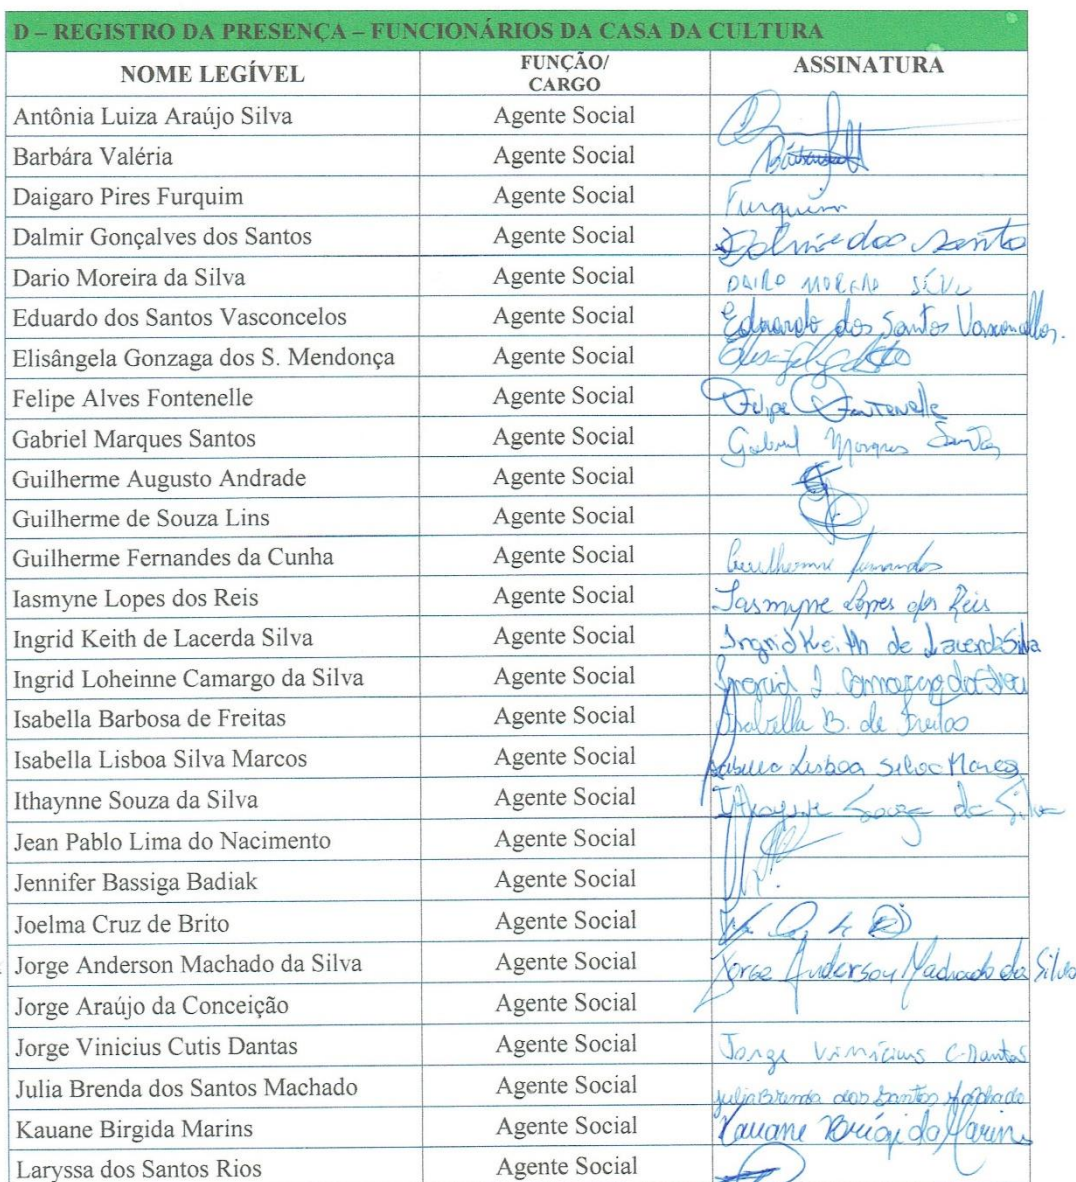 D – REGISTRO DA PRESENÇA – FUNCIONÁRIOS DA CASA DA CULTURA
NOME LEGÍVEL FUNÇÃO/ CARGO ASSINATURA
Antônia Luiza Araújo Silva Agente Social
Barbára Valéria Agente Social
Daigaro Pires Furquim Agente Social Furquim
Dalmir Gonçalves dos Santos Agente Social dos Santo
Dario Moreira da Silva Agente Social
Eduardo dos Santos Vasconcelos Agente Social Eduardo dos Santos Vasconcellos.
Elisângela Gonzaga dos S. Mendonça Agente Social
Felipe Alves Fontenelle Agente Social Felipe Fontenelle
Gabriel Marques Santos Agente Social Gabriel Marques Santos
Guilherme Augusto Andrade Agente Social
Guilherme de Souza Lins Agente Social
Guilherme Fernandes da Cunha Agente Social Guilherme Fernandes
Iasmyne Lopes dos Reis Agente Social Iasmyne Lopes dos Reis
Ingrid Keith de Lacerda Silva Agente Social Ingrid Keith de Lacerda Silva
Ingrid Loheinne Camargo da Silva Agente Social Ingrid L. Camargo da Silva
Isabella Barbosa de Freitas Agente Social Isabella B. de Freitas
Isabella Lisboa Silva Marcos Agente Social Isabella Lisboa Silva Marcos
Ithaynne Souza da Silva Agente Social Ithaynne Souza da Silva
Jean Pablo Lima do Nacimento Agente Social
Jennifer Bassiga Badiak Agente Social
Joelma Cruz de Brito Agente Social
Jorge Anderson Machado da Silva Agente Social Jorge Anderson Machado da Silva
Jorge Araújo da Conceição Agente Social
Jorge Vinicius Cutis Dantas Agente Social Jorge Vinícius C. Dantas
Julia Brenda dos Santos Machado Agente Social Julia Brenda dos Santos Machado
Kauane Birgida Marins Agente Social Kauane Brígida Marins
Laryssa dos Santos Rios Agente Social